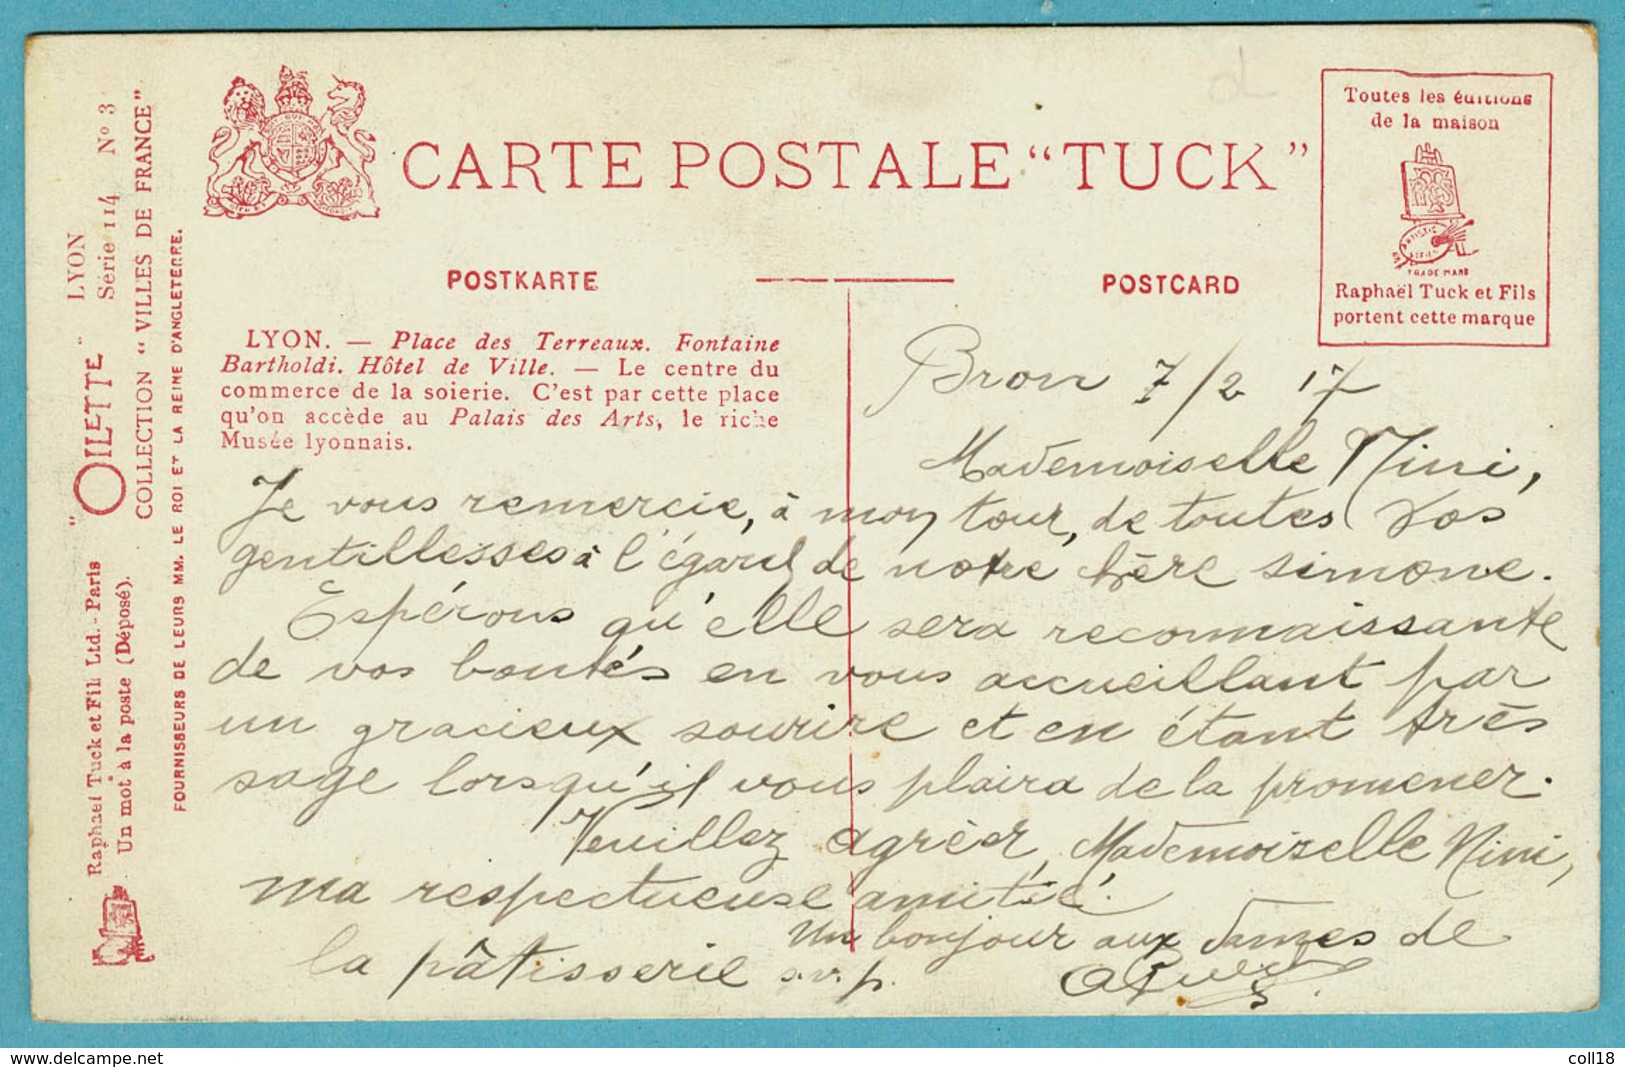 CARTE POSTALE “TUCK”
Toutes les éditions
de la maison
ARTISTIC
TRADE MARK
Raphaël Tuck et Fils
portent cette marque
POSTKARTE
POSTCARD
LYON. — Place des Terreaux. Fontaine
Bartholdi. Hôtel de Ville. — Le centre du
commerce de la soierie. C'est par cette place
qu'on accède au Palais des Arts, le riche
Musée lyonnais.
Bron 7/2 17
Mademoiselle Nini,
Je vous remercie, à mon tour, de toutes vos
gentillesses à l'égard de notre chère simone.
Espérons qu'elle sera reconnaissante
de vos bontés en vous accueillant par
un gracieux sourire et en étant très
sage lorsqu'il vous plaira de la promener.
Veuillez agréer, Mademoiselle Nini,
ma respectueuse amitié.
Un bonjour aux dames de
la pâtisserie s.v.p.
"OILETTE" LYON
Série 114 No 3
COLLECTION “VILLES DE FRANCE”
Raphael Tuck et Fils Ltd. - Paris
Un mot à la poste (Déposé).
FOURNISSEURS DE LEURS MM. LE ROI ET LA REINE D'ANGLETERRE.
https://www.delcampe.net
coll18